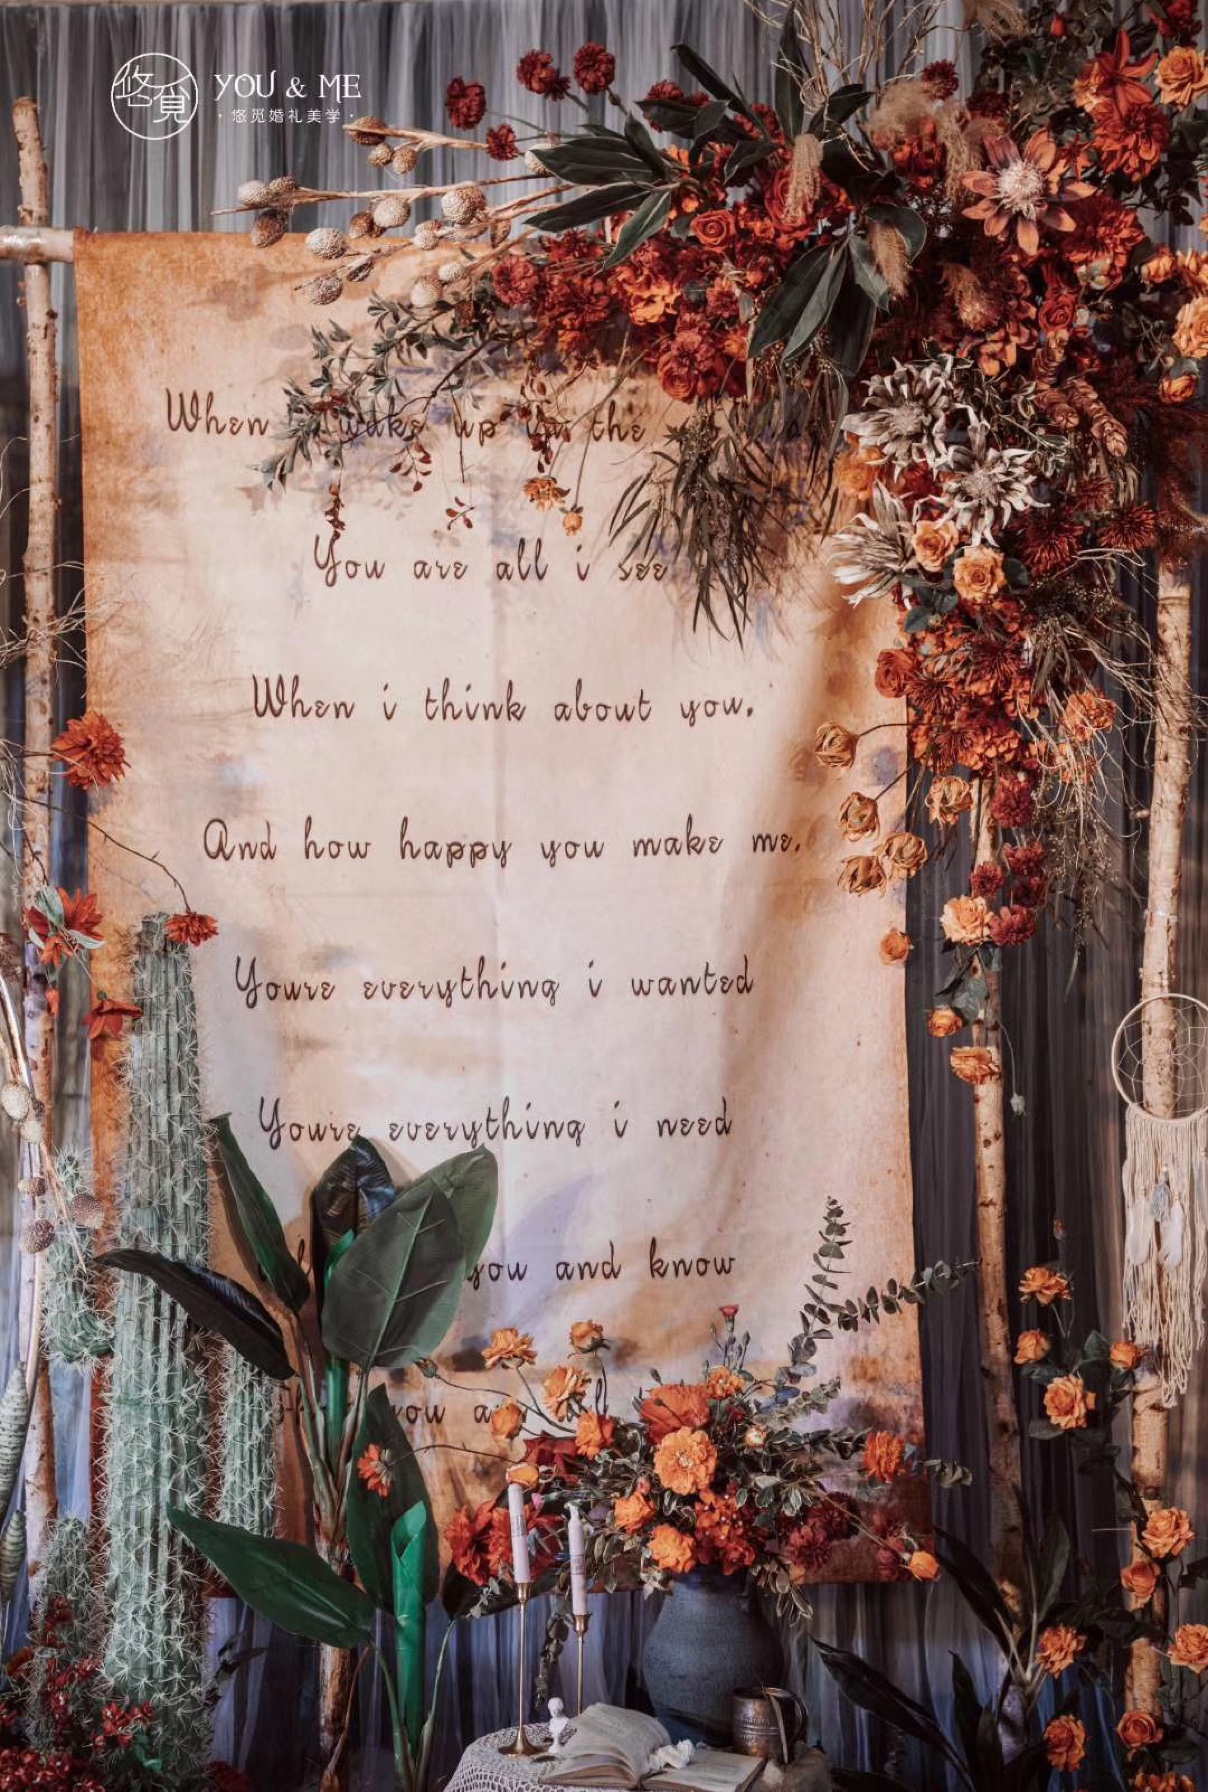 悠覓
YOU & ME
·悠觅婚礼美学·
When wake up in the
You are all i see
When i think about you.
And how happy you make me.
Youre everything i wanted
Youre everything i need
you and know
you